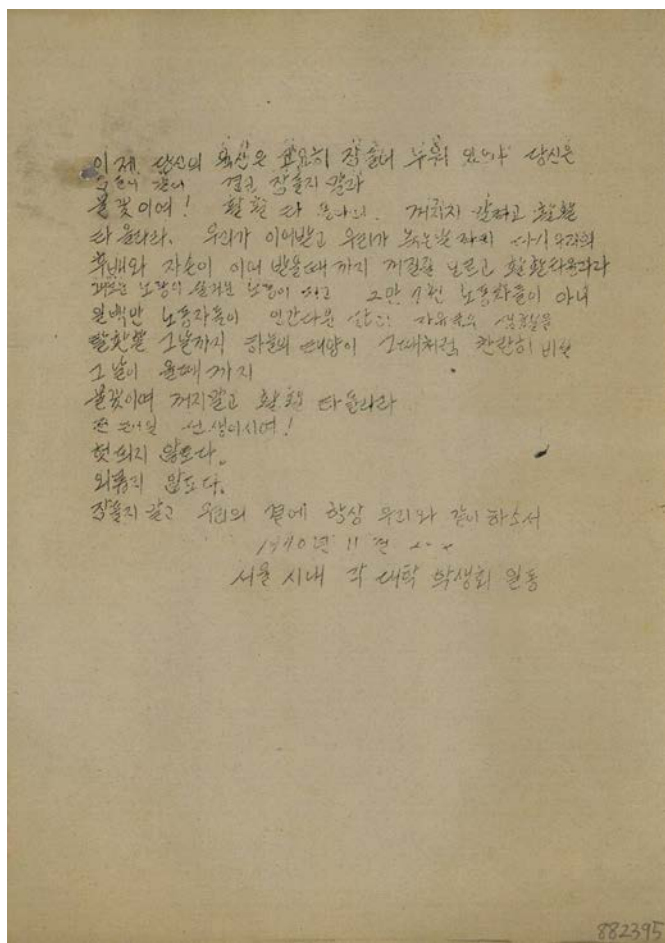 이제 당신의 육신은 고요히 잠들어 누워 있으나 당신은
결코 잠들지 말라
불꽃이여! 활활 타 올라라. 꺼지지 말라고 활활
타 올라라. 우리가 이어받고 우리가 죽은 다시 우리의
후배와 자손이 이어 받을때 까지 꺼질줄 모르고 활활타올라라
노동이 2만 7천 노동자들이 아니
일백만 노동자들이 인간다운 삶의
그날까지 하늘의 태양이 그때처럼 찬란히 비칠
그날이 올때 까지
불꽃이여 꺼지말고 활활 타올라라
전태일 선생이시여!
헛되지 않도다.
외롭지 않도다.
잠들지 말고 우리의 곁에 항상 우리와 같이 하소서
1970년 11월 × ×
서울 시내 각 대학 학생회 일동
882395